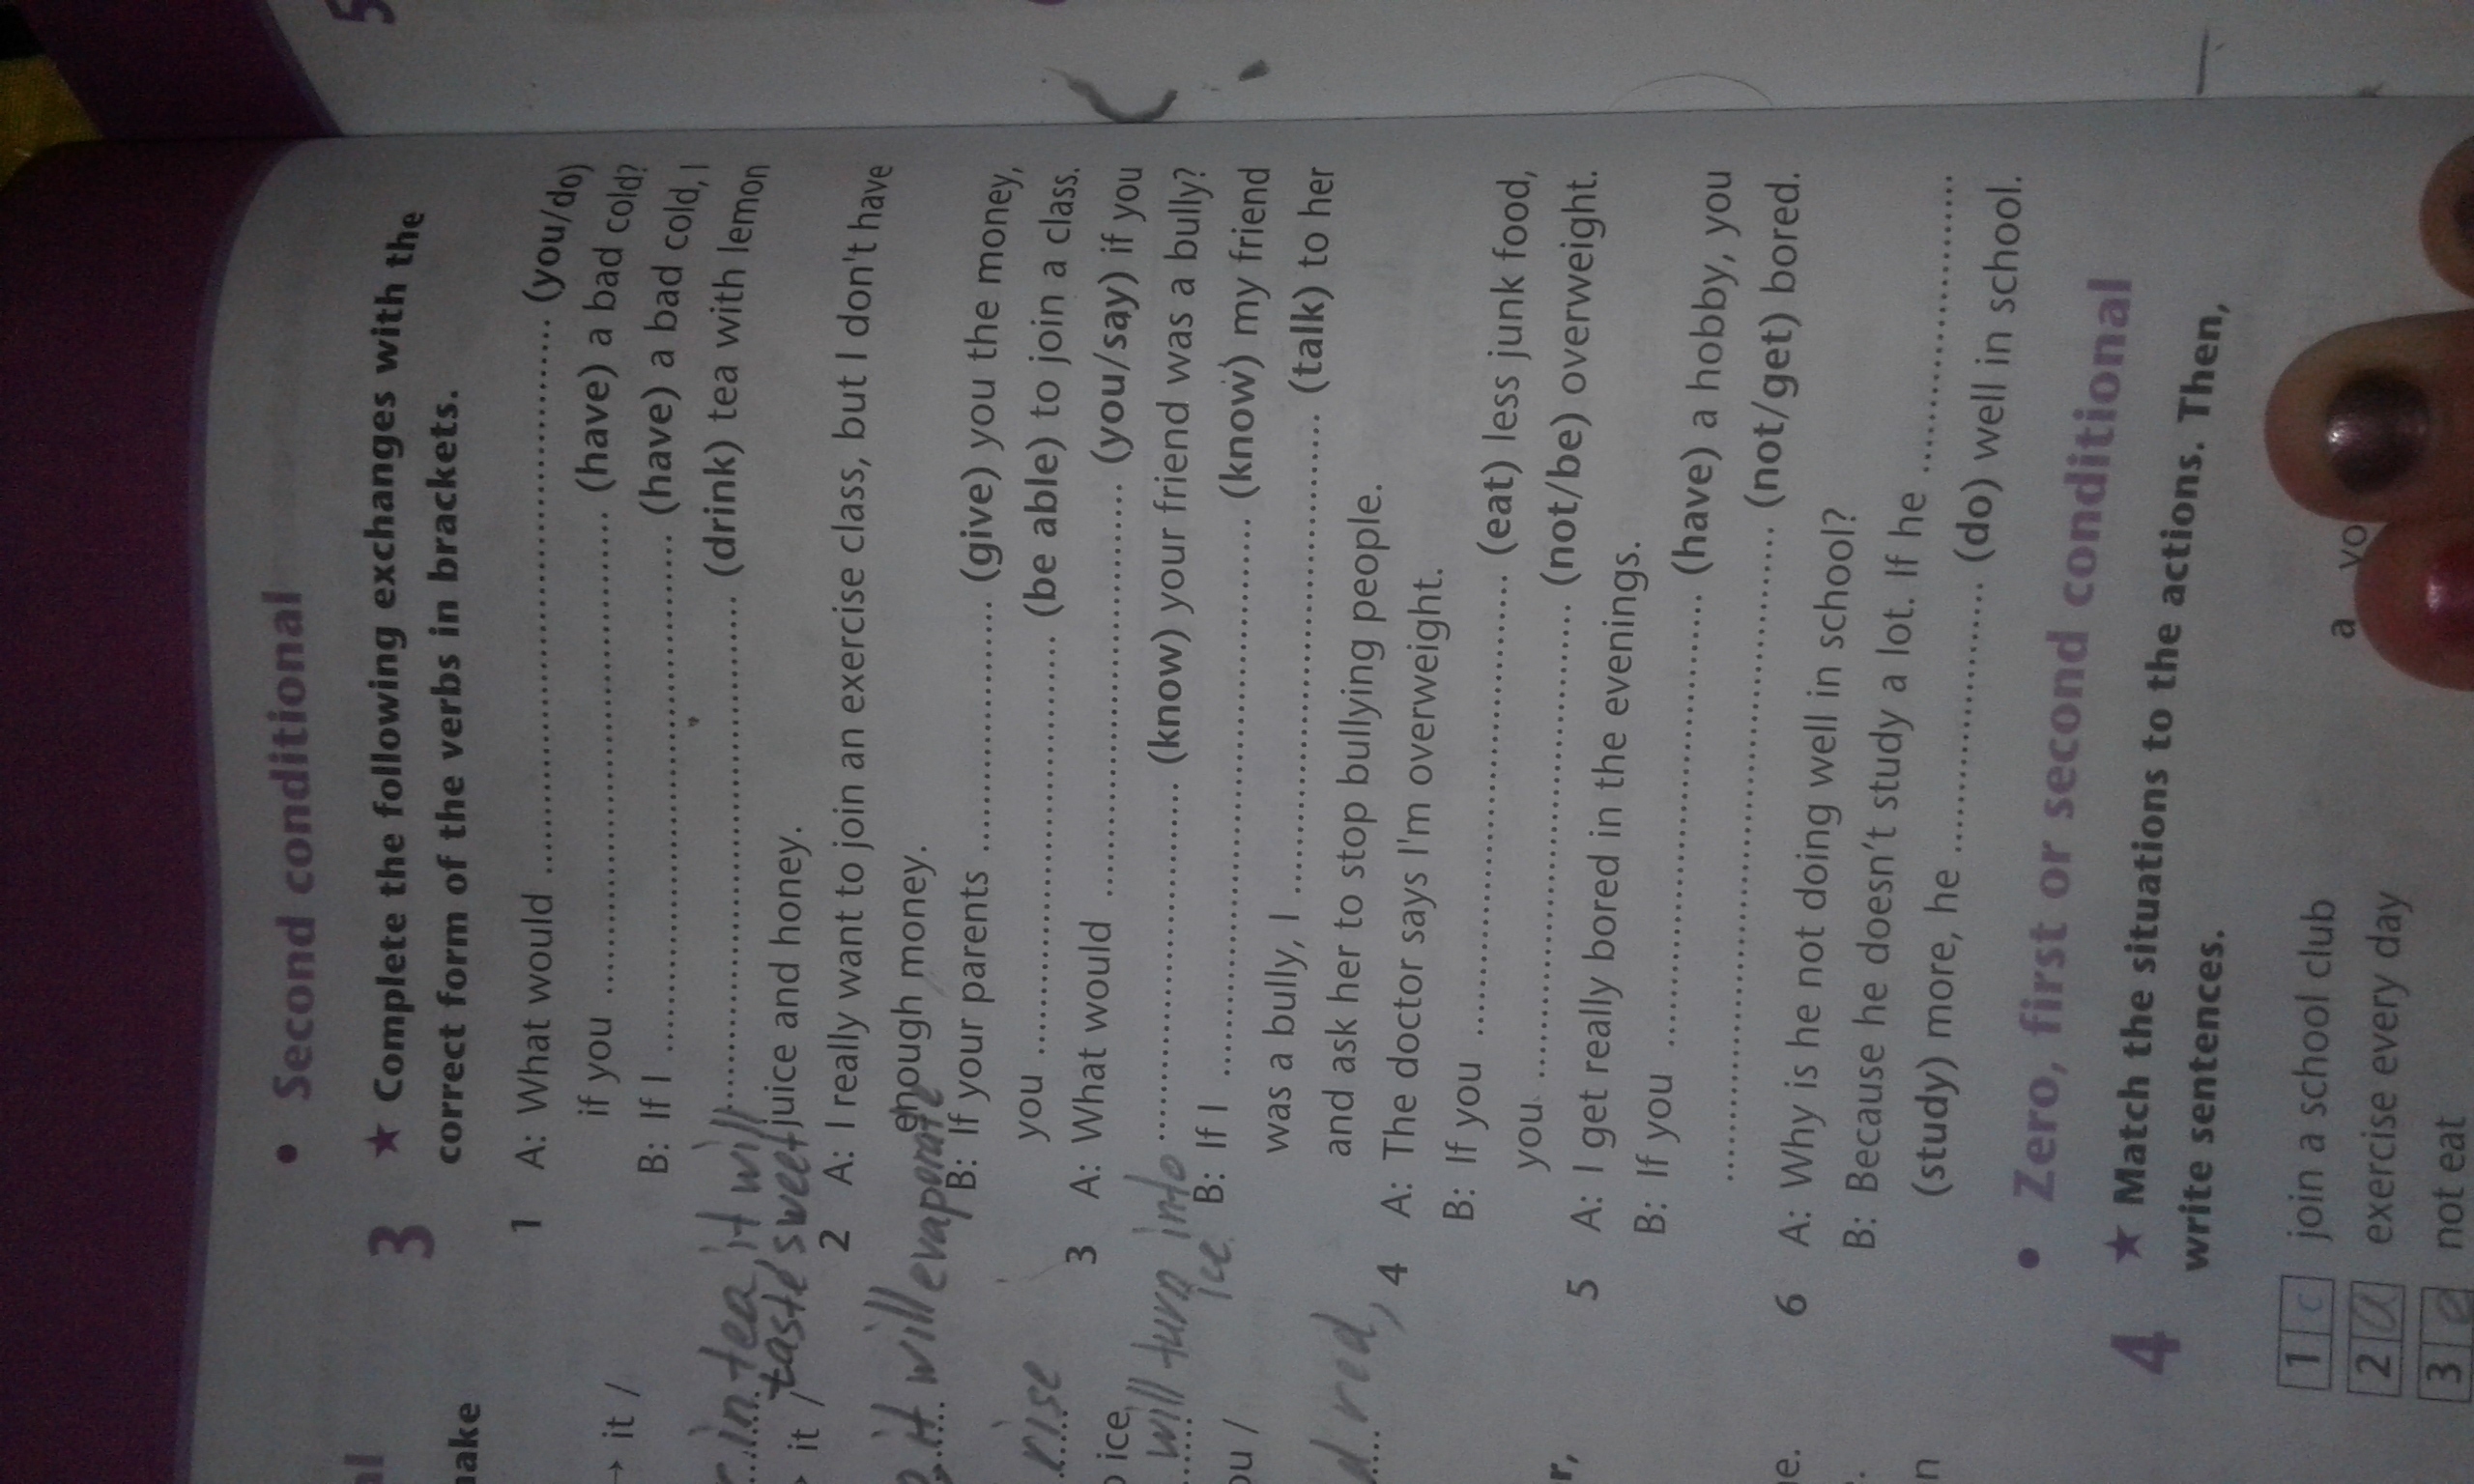 5
• Second conditional
3 ★ Complete the following exchanges with the
correct form of the verbs in brackets.
1 A: What would .............................. (you/do)
if you .............................. (have) a bad cold?
B: If I .............................. (have) a bad cold, I
.............................. (drink) tea with lemon
juice and honey.
2 A: I really want to join an exercise class, but I don't have
enough money.
B: If your parents .................... (give) you the money,
you .............................. (be able) to join a class.
3 A: What would .............................. (you/say) if you
.............................. (know) your friend was a bully?
B: If I .............................. (know) my friend
was a bully, I .............................. (talk) to her
and ask her to stop bullying people.
4 A: The doctor says I'm overweight.
B: If you .............................. (eat) less junk food,
you .............................. (not/be) overweight.
5 A: I get really bored in the evenings.
B: If you .............................. (have) a hobby, you
.............................. (not/get) bored.
6 A: Why is he not doing well in school?
B: Because he doesn't study a lot. If he ....................
(study) more, he .................... (do) well in school.
• Zero, first or second conditional
4 ★ Match the situations to the actions. Then,
write sentences.
1 c join a school club
2 a exercise every day
3 not eat
a yo
→ it /
in tea, it will
it / taste sweet
it will evaporate
rise
ice
will turn into
ice.
ou /
red,
r,
e.
n